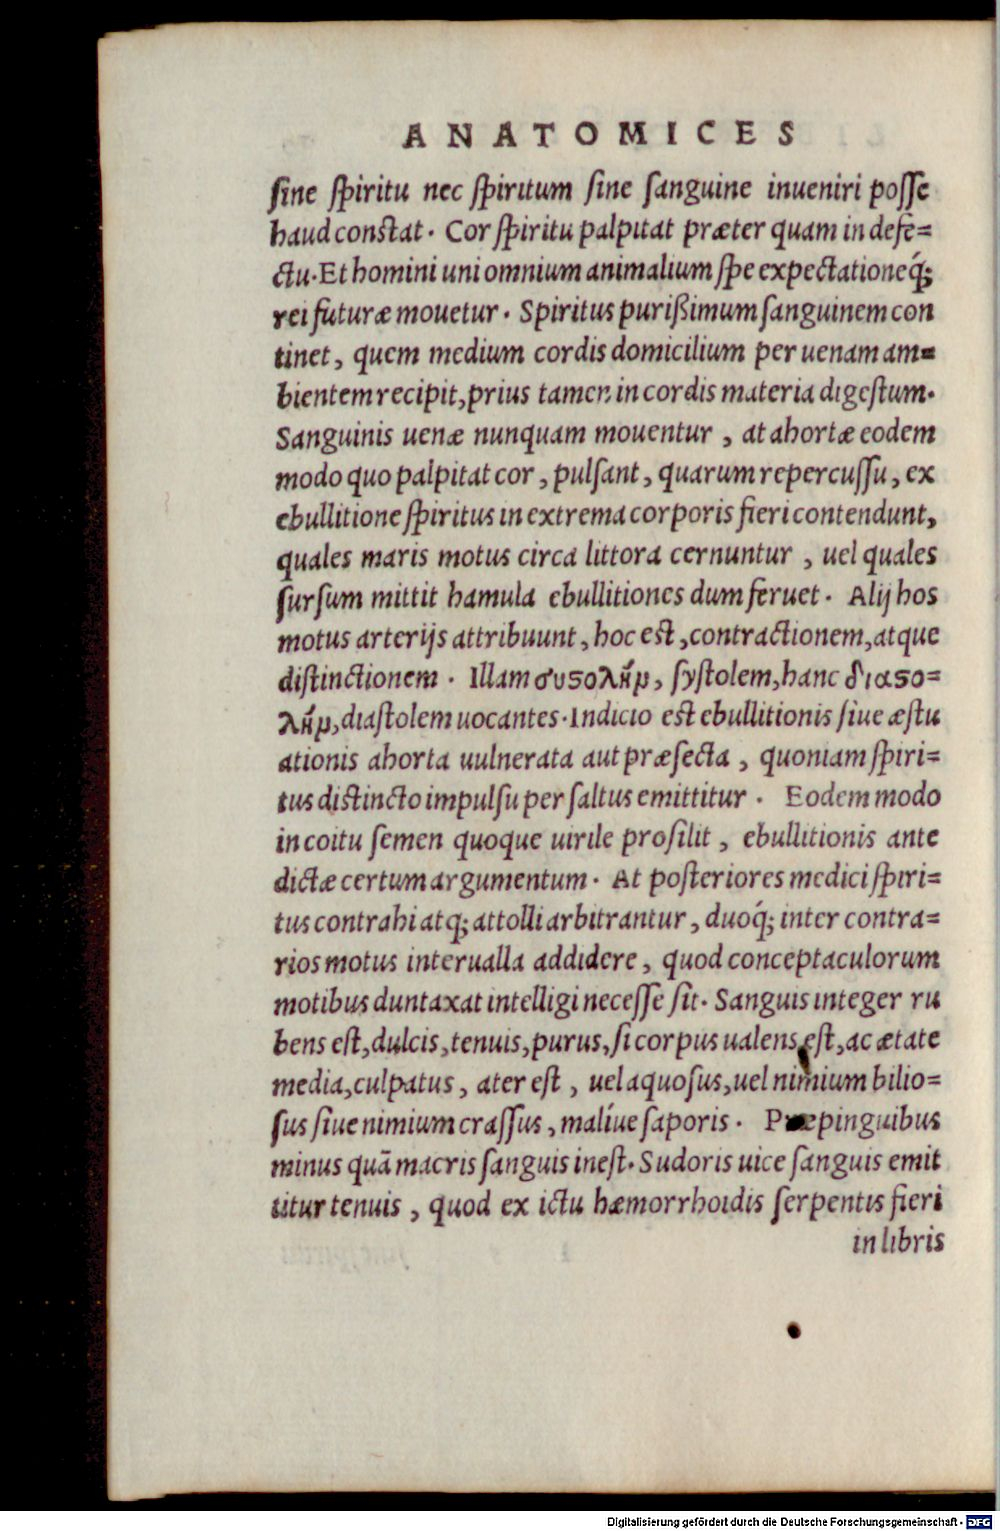 ANATOMICES
ſine ſpiritu nec ſpiritum ſine ſanguine inueniri poſſe
haud conſtat. Cor ſpiritu palpitat præter quam in defe=
ctu. Et homini uni omnium animalium ſpe expectationeq́;
rei futuræ mouetur. Spiritus purißimum ſanguinem con
tinet, quem medium cordis domicilium per uenam am=
bientem recipit, prius tamen in cordis materia digeſtum.
Sanguinis uenæ nunquam mouentur, at ahortæ eodem
modo quo palpitat cor, pulſant, quarum repercuſſu, ex
ebullitione ſpiritus in extrema corporis fieri contendunt,
quales maris motus circa littora cernuntur, uel quales
ſurſum mittit hamula ebullitiones dum feruet. Alij hos
motus arterijs attribuunt, hoc eſt, contractionem, atque
diſtinctionem. Illam συϛολὴν, ſyſtolem, hanc διαϛο=
λὴν, diaſtolem uocantes. Indicio eſt ebullitionis ſiue æſtu
ationis ahorta uulnerata aut præſecta, quoniam ſpiri=
tus diſtincto impulſu per ſaltus emittitur. Eodem modo
in coitu ſemen quoque uirile proſilit, ebullitionis ante
dictæ certum argumentum. At poſteriores medici ſpiri=
tus contrahi atq; attolli arbitrantur, duoq́; inter contra=
rios motus interualla addidere, quod conceptaculorum
motibus duntaxat intelligi neceſſe ſit. Sanguis integer ru
bens eſt, dulcis, tenuis, purus, ſi corpus ualens eſt, ac ætate
media, culpatus, ater eſt, uel aquoſus, uel nimium bilio=
ſus ſiue nimium craſſus, malíue ſaporis. Præpinguibus
minus quã macris ſanguis ineſt. Sudoris uice ſanguis emit
titur tenuis, quod ex ictu hæmorrhoidis ſerpentis fieri
in libris
Digitalisierung gefördert durch die Deutsche Forschungsgemeinschaft - DFG